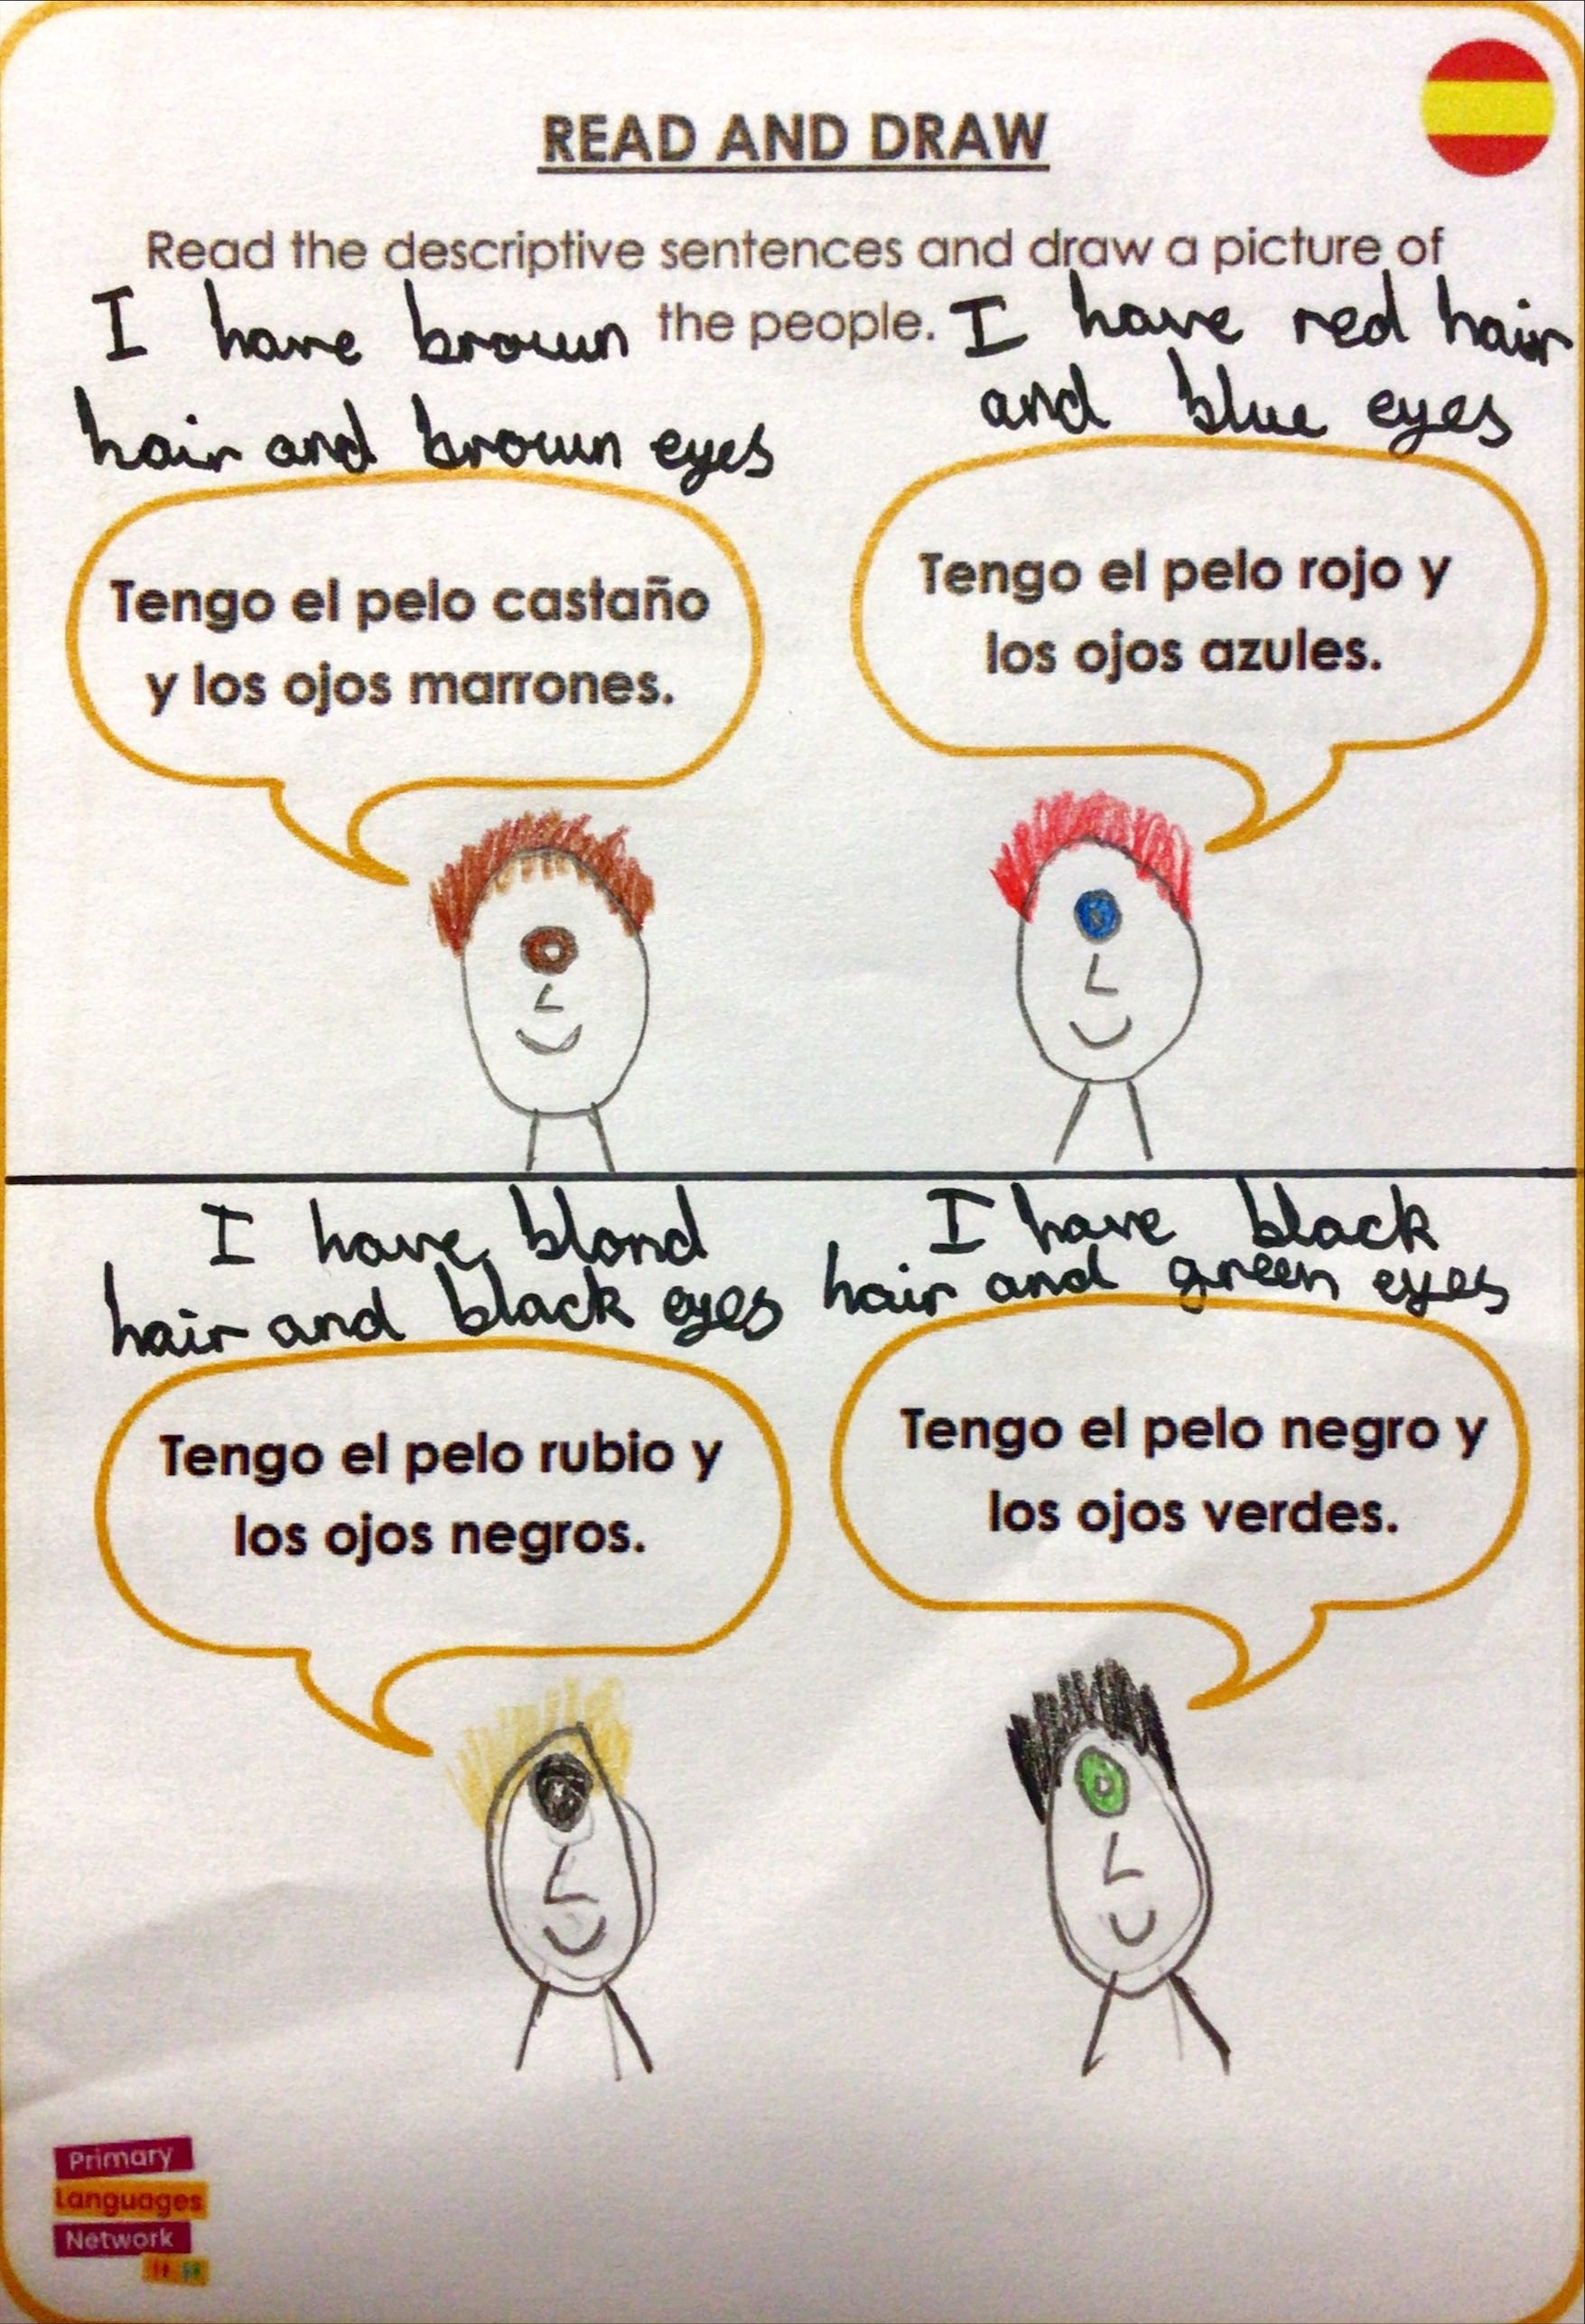 READ AND DRAW
Read the descriptive sentences and draw a picture of
the people.
I have brown
hair and brown eyes
I have red hair
and blue eyes
Tengo el pelo castaño
y los ojos marrones.
Tengo el pelo rojo y
los ojos azules.
I have blond
hair and black eyes
I have black
hair and green eyes
Tengo el pelo rubio y
los ojos negros.
Tengo el pelo negro y
los ojos verdes.
Primary
Languages
Network